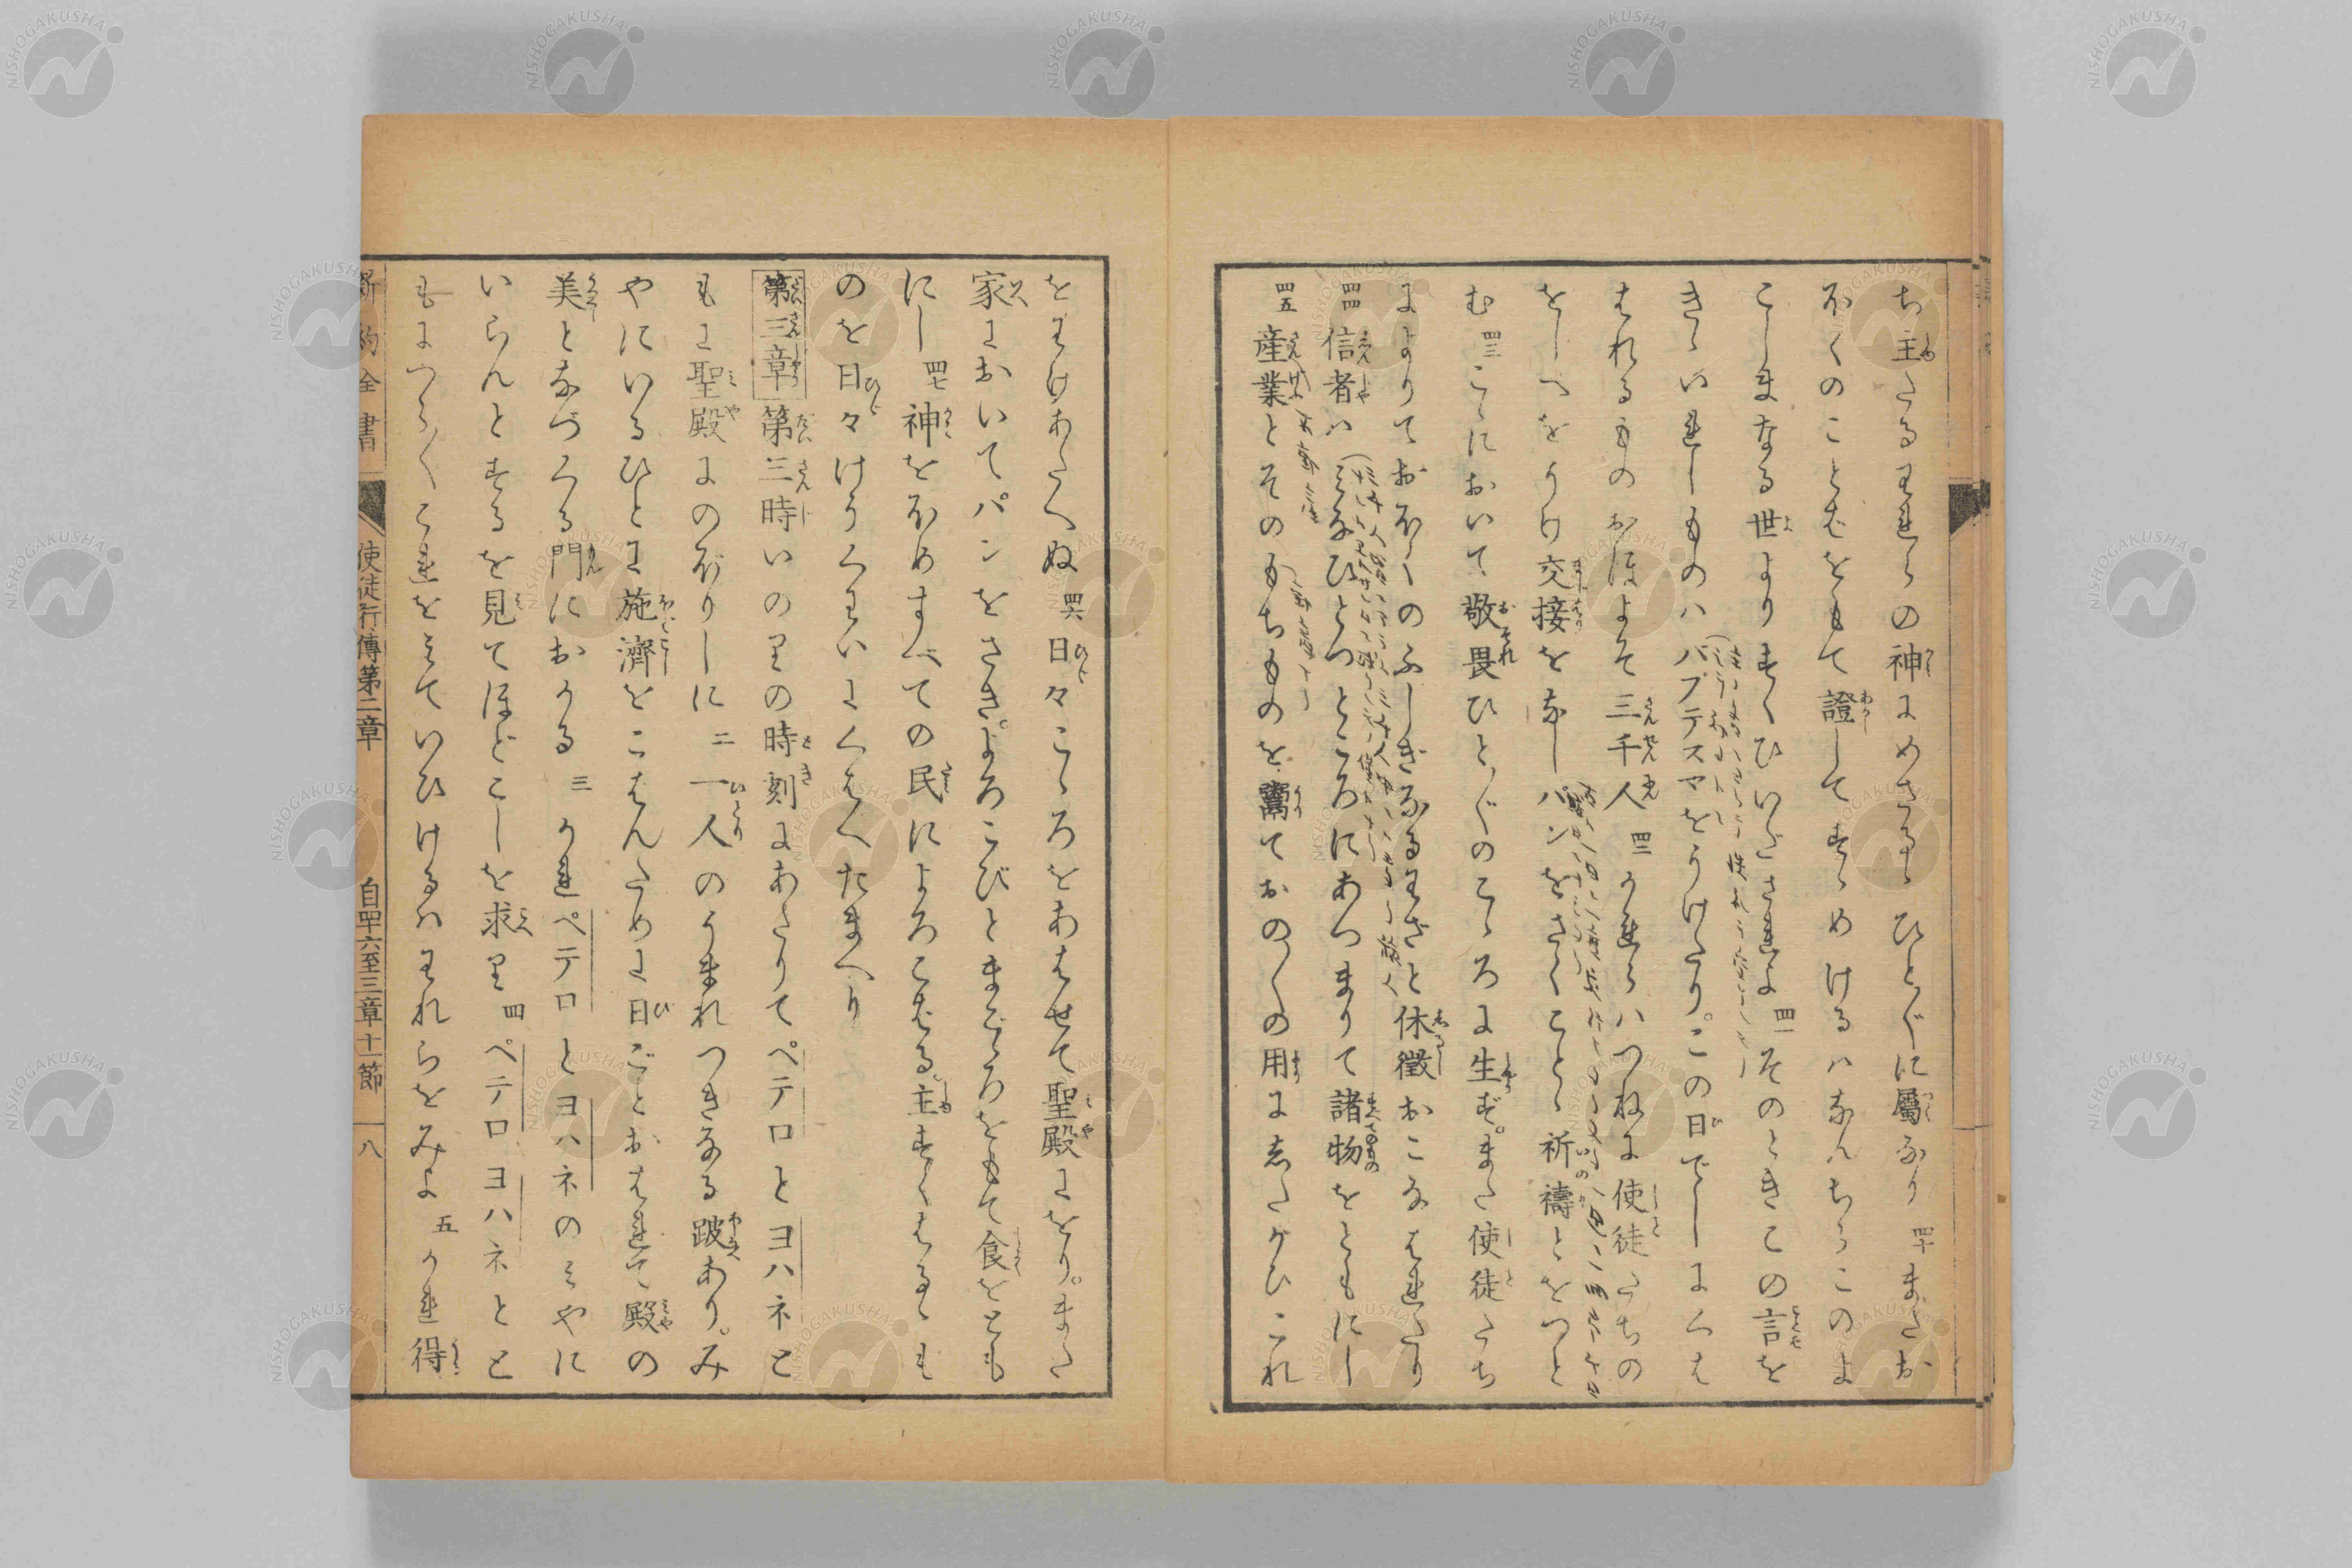 ち主たるわれらの神にめさるゝひとびとに屬なり 四十 またお
ほくのことばをもて證してすゝめけるハなんぢらこのよ
こしまなる世よりすくひいださせよ 四一 そのときこの言を
きゝいれしものハバプテスマをうけたり。この日でしにくは
はれるものおほよそ三千人 四二 かれらハつねに使徒たちの
をしへをうけ交接をなしパンをさくことゝ祈禱とをつと
む 四三 こゝにおいて敬畏ひとびとのこゝろに生ず。また使徒たち
によりておほくのふしぎなるわざと休徴おこなはれたり
四四 信者ハみなひとつところにあつまりて諸物をともにし
四五 産業とそのもちものを鬻ておのおのの用にしたがひこれ
をわけあたへぬ 四六 日々こゝろをあはせて聖殿にをり。また
家においてパンをさき。よろこびとまごゝろをもて食をとも
にし 四七 神をほめすべての民によろこばる。主すくはるゝも
のを日々けうくわいにくはへたまへり
第三章 第三時いのりの時刻にあたりてペテロとヨハネと
もに聖殿にのぼりしに 二 一人のうまれつきなる跛あり。み
やにいるひとに施濟をこはんために日ごとおはれて殿の
美となづくる門におかる 三 かれペテロとヨハネのみやに
いらんとするを見てほどこしを求り 四 ペテロヨハネとと
もにつらつらこれをみていひけるハわれらをみよ 五 かれ得
新約全書 使徒行傳第二章 自四十六至三章十一節 八